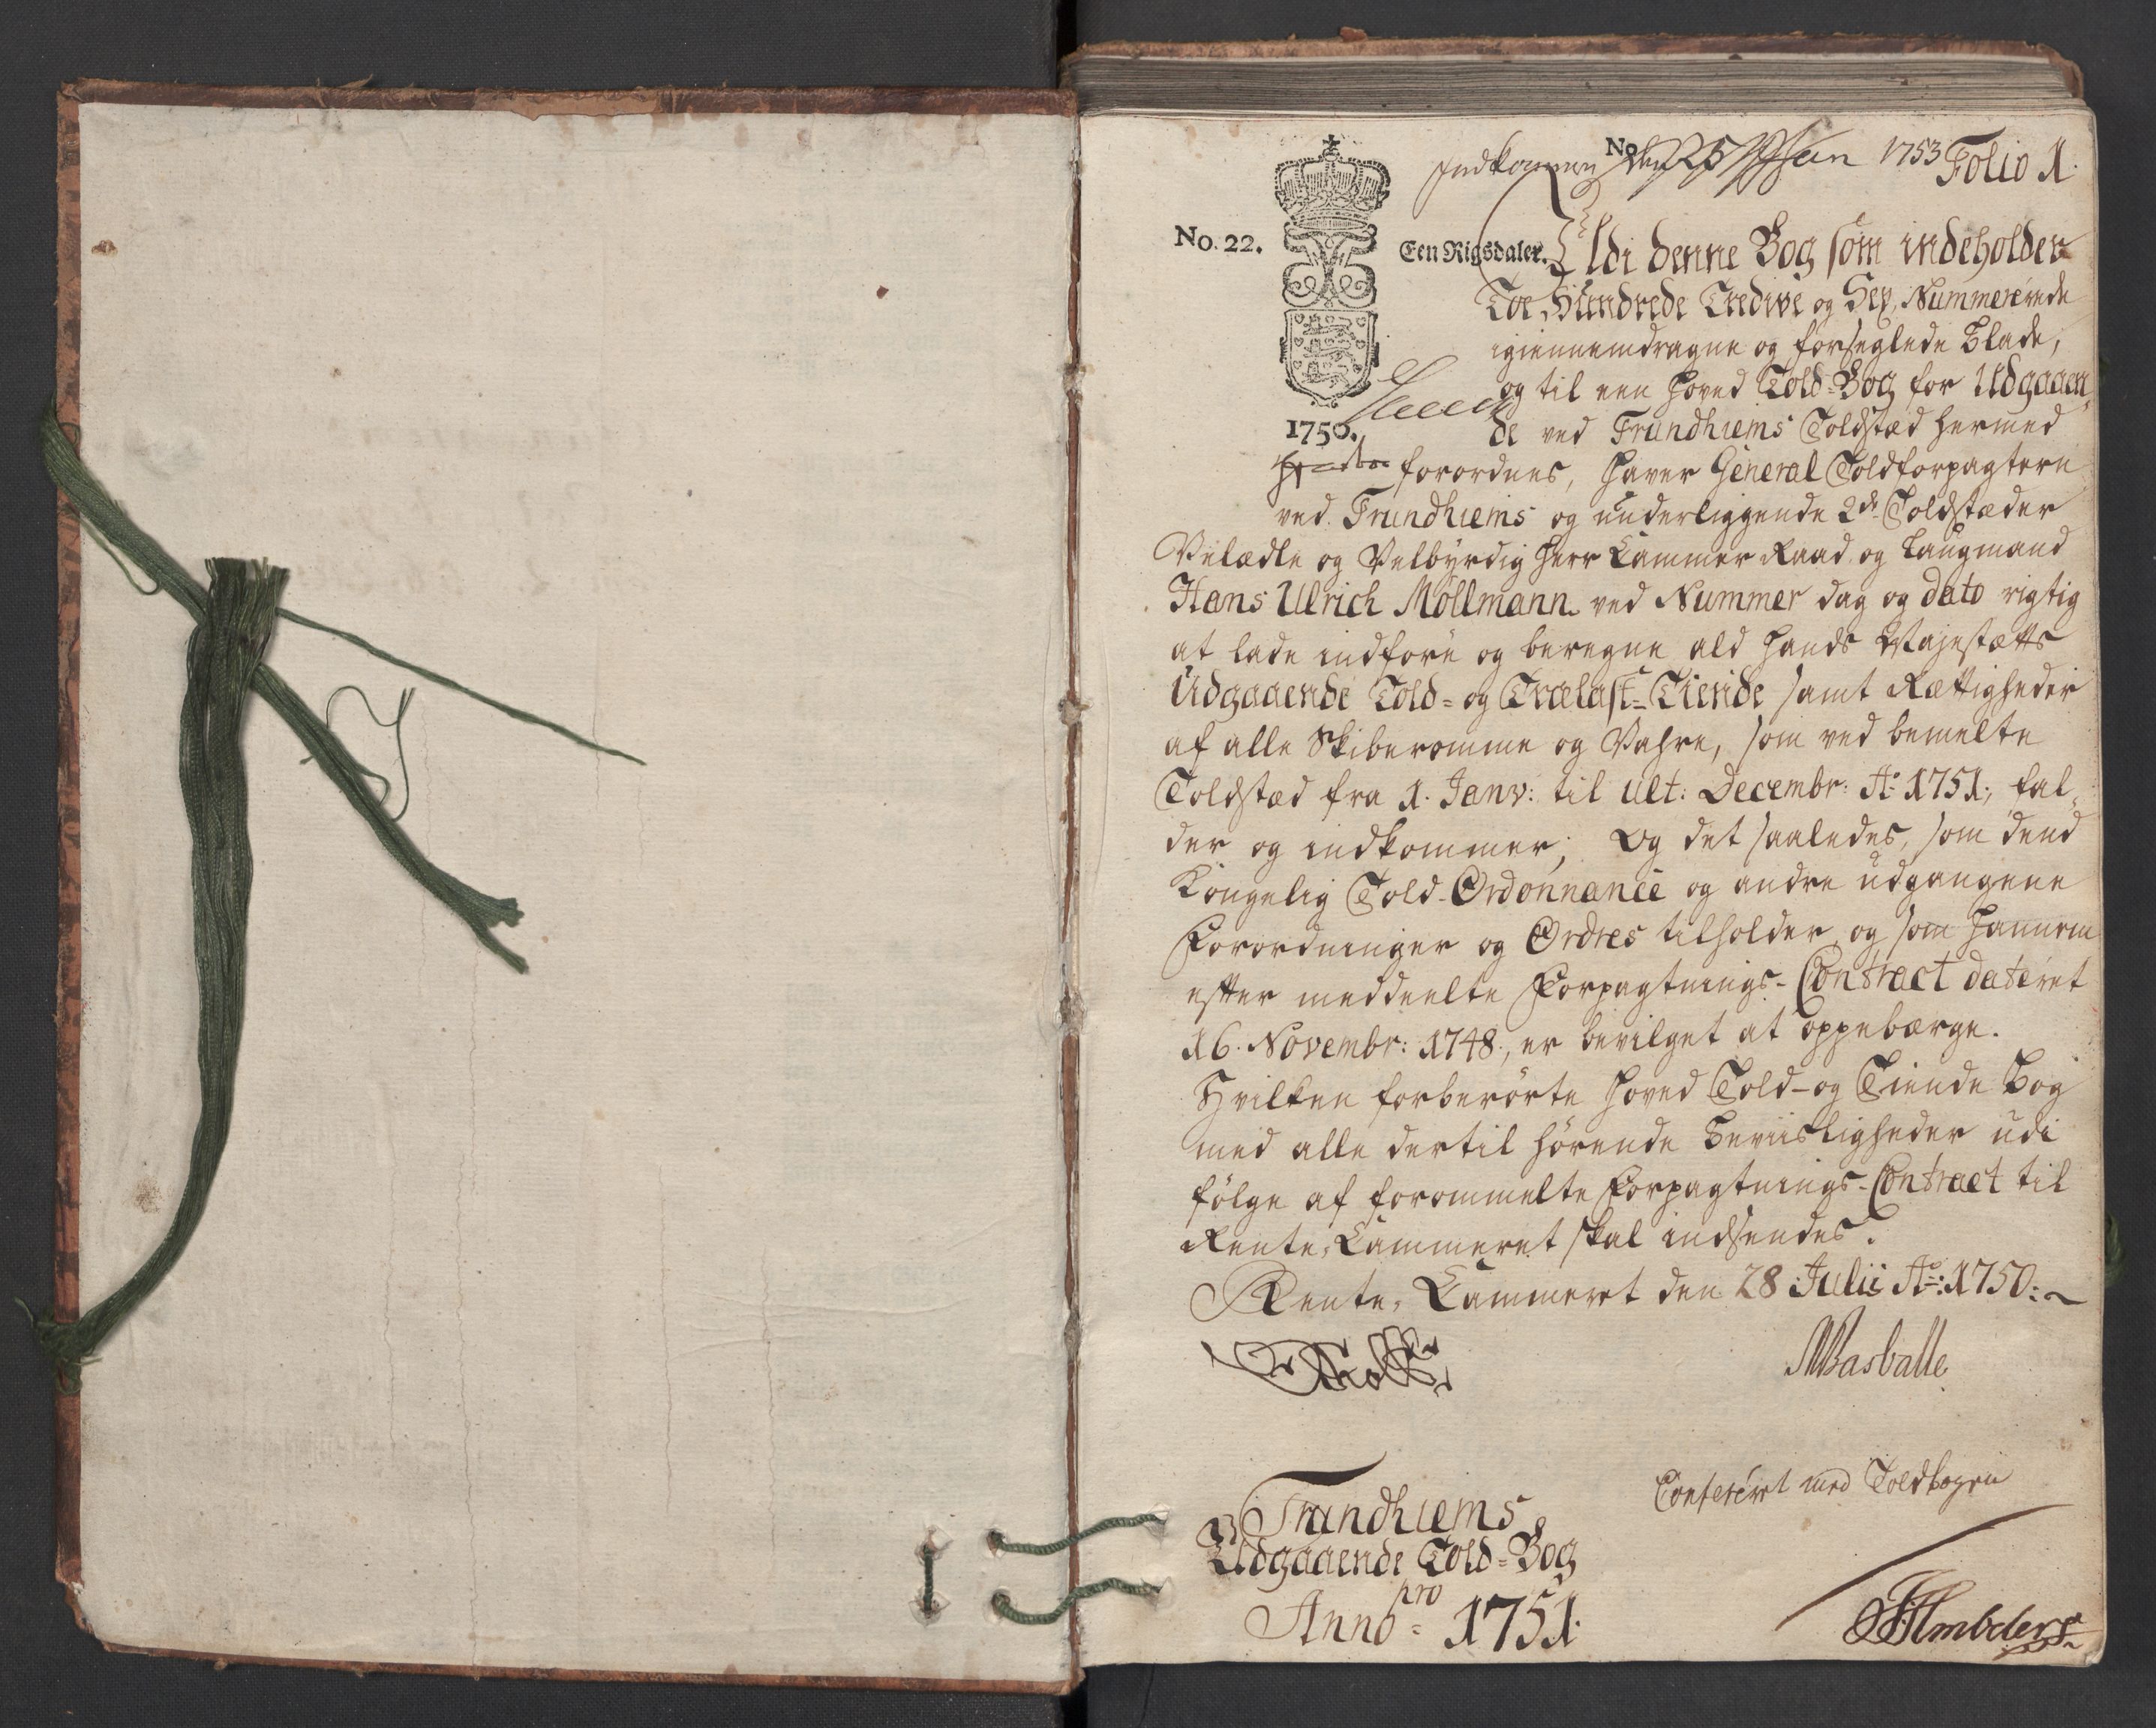 Indkommen den 25 Jan 1753 Folio 1.
No
No. 22.
Een Rigsdaler.
Udi denne Bog som indeholder
Toe Hundrede Tredive og Sex, Nummererede
igiennemdragne og forseglede Blade,
og til een Hoved Told-Bog for Udgaaen-
1750.
de ved Trundhiems Toldstæd hermed
forordnes, haver General Toldforpagteren
ved Trundhiems og underliggende 2de Toldstæder
Velædle og Velbyrdig Herr Cammer Raad og Laugmand
Hans Ulrich Möllmann ved Nummer dag og dato rigtig
at lade indføre og beregne ald Hands Majestætts
Udgaaende Told- og Trælast-Tiende samt Rættigheder
af alle Skiberomme og Vahre, som ved bemelte
Toldstæd fra 1. Janv: til ult: Decembr: Ao 1751, fal-
der og indkommer; Og det saaledes, som dend
Kongelig Told-Ordonnance og andre udgangene
Forordninger og Ordres tilholder, og som hannem
efter meddeelte Forpagtnings-Contract dateret
16. Novembr: 1748, er bevilget at oppebærge.
Hvilken forberørte Hoved Told- og Tiende Bog
med alle dertil hørende Beviisligheder udi
følge af forommelte Forpagtnings-Contract til
Rente-Cammeret skal indsendes.
Rente-Cammeret den 28 Julii Ao: 1750.
MBasballe
Confereret med Toldbogen
Trundhiems
Udgaaende Told-Bog
pro
Anno 1751.